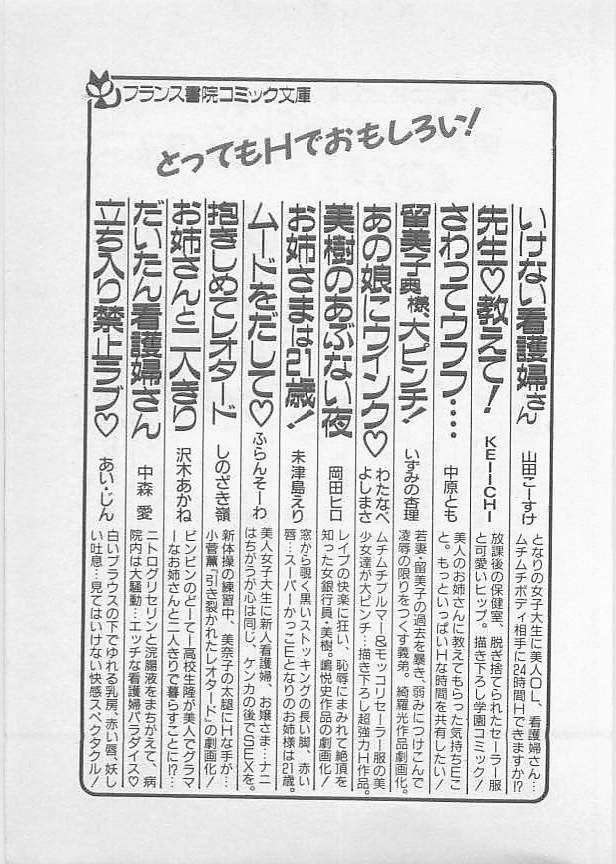 フランス書院コミック文庫
とってもHでおもしろい!
いけない看護婦さん
山田こーすけ
となりの女子大生に美人OL、看護婦さん…
ムチムチボディ相手に24時間Hできますか!?
先生♡教えて!
KEIICHI
放課後の保健室、脱ぎ捨てられたセーラー服
と可愛いヒップ。描き下ろし学園コミック!
さわってウフフ‥‥
中原とも
美人のお姉さんに教えてもらった気持ちEこ
と。もっといっぱいHな時間を共有したい!
留美子奥様、大ピンチ!
いずみの杏理
若妻・留美子の過去を暴き、弱みにつけこんで
凌辱の限りをつくす義弟。綺羅光作品劇画化。
あの娘にウインク♡
わたなべ
よしまさ
ムチムチブルマー&モッコリセーラー服の美
少女達が大ピンチ…描き下ろし超強力H作品。
美樹のあぶない夜
岡田ヒロ
レイプの快楽に狂い、恥辱にまみれて絶頂を
知った女銀行員・美樹。嶋悦史作品の劇画化!
お姉さまは21歳!
未津島えり
窓から覗く黒いストッキングの長い脚、赤い
唇…スーパーかっこEとなりのお姉様は21歳。
ムードをだして♡
ふらんそーわ
美人女子大生に新人看護婦、お嬢さま…ナニ
はちがうが心は同じ、ケンカの後でSEXを。
抱きしめてレオタード
しのざき嶺
新体操の練習中、美奈子の太腿にHな手が…
小菅薫「引き裂かれたレオタード」の劇画化!
お姉さんと二人きり
沢木あかね
ビンビンのどーてー高校生隆が美人でグラマ
ーなお姉さんと二人きりで暮らすことに!?…
だいたん看護婦さん
中森 愛
ニトログリセリンと浣腸液をまちがえて、病
院内は大騒動…エッチな看護婦パラダイス♡
立ち入り禁止ラブ♡
あい・じん
白いブラウスの下でゆれる乳房、赤い唇、妖し
い吐息…見てはいけない快感スペクタクル!